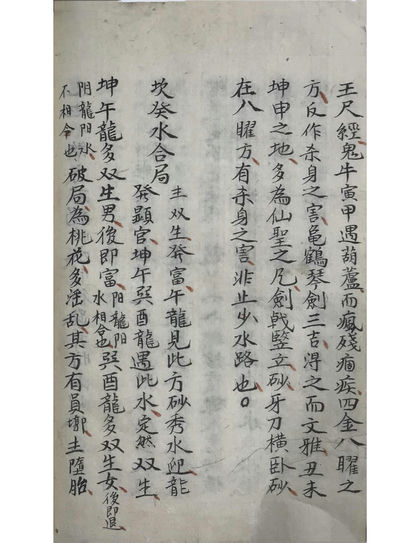 王尺經鬼牛寅甲遇葫蘆而瘋殘痼疾四金八曜之
方反作杀身之害龜鶴琴劍三吉得之而文雅丑未
坤申之地多為仙聖之凡劍戟竪立砂牙刀橫臥砂
在八曜方有杀身之害非止少水路也。
坎癸水合局
主双生發富午龍見此方砂秀水迎龍
發顯官坤午巽酉龍遇此水定然双生
坤午龍多双生男後即富陽龍陽水相合也巽酉龍多双生女後即退
阴龍阳水不相合也破局為桃花多淫乱其方有員墩主墮胎